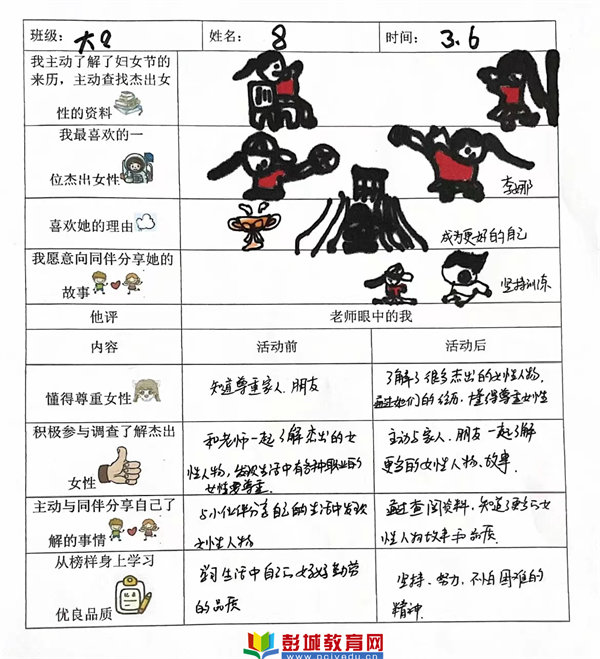 班级：大
姓名：8
时间：3.6
我主动了解了妇女节的
来历，主动查找杰出女
性的资料
我最喜欢的一
位杰出女性
李娜
喜欢她的理由
成为更好的自己
我愿意向同伴分享她的
故事
坚持训练
他评
老师眼中的我
内容
活动前
活动后
懂得尊重女性
知道尊重家人、朋友
了解了很多杰出的女性人物，
通过她们的经历，懂得尊重女性
积极参与调查了解杰出
女性
和老师一起了解杰出的女
性人物，发现生活中有各种职业的
女性要尊重
主动与家人、朋友一起了解
更多的女性人物、故事。
主动与同伴分享自己了
解的事情
与小伙伴分享自己的生活中发现
女性人物
通过查阅资料，知道了更多女
性人物故事和品质。
从榜样身上学习
优良品质
学习生活中自己
的品质
坚持、努力、不怕困难的
精神。
彭城教育网
www.pcjyedu.cn